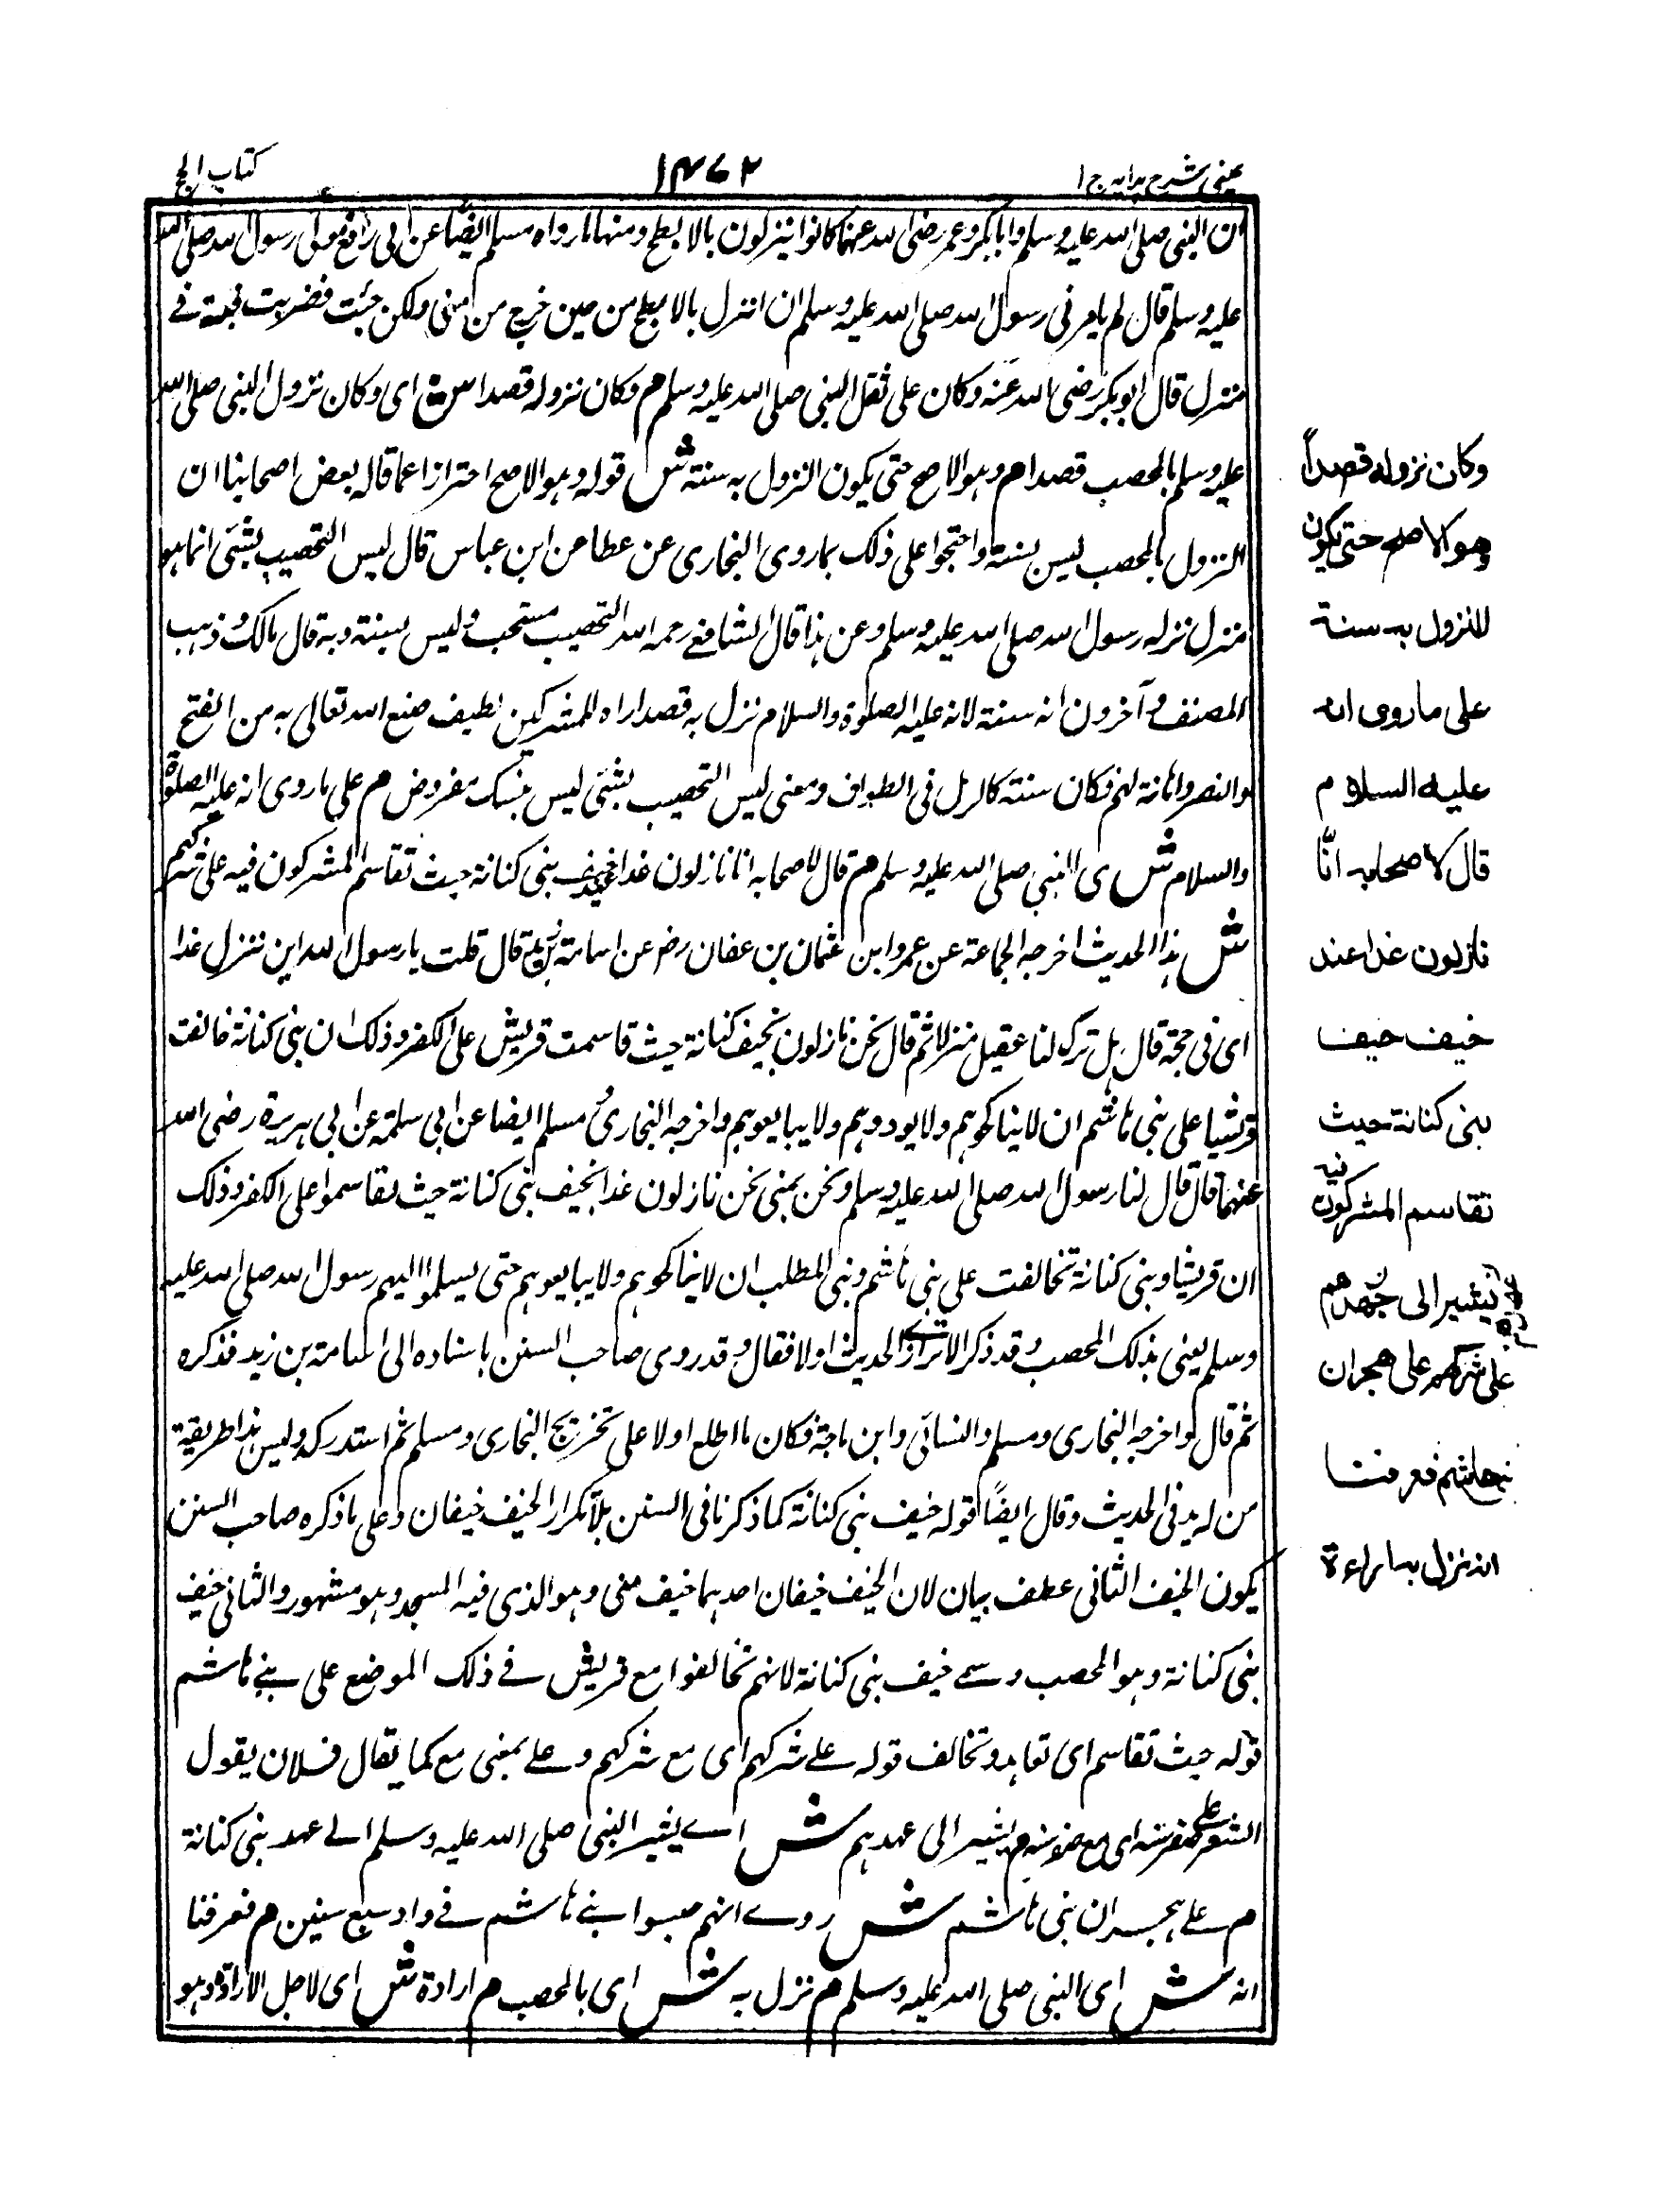 عینی شرح ہدایہ ج ۱
۱۴۷۲
کتاب الحج
ان النبی صلی اللہ علیہ وسلم وابابکر وعمر رضی اللہ عنہما کانوا ینزلون بالابطح ومنہا مارواہ مسلم ایضًا عن ابی رافع مولی رسول اللہ صلی اللہ
علیہ وسلم قال لم یامرنی رسول اللہ صلی اللہ علیہ وسلم ان انزل بالابطح من حین خرج من منی ولکن جئت فضربت قبتہ فے
منزل قال ابوبکر رضی اللہ عنہ وکان علی ثقل النبی صلی اللہ علیہ وسلم م وکان نزولہ قصدا ش ای وکان نزول النبی صلی اللہ
علیہ وسلم بالمحصب قصدا م وہو الاصح حتی یکون النزول بہ سنۃ ش قولہ وہو الاصح احترازا عما قالہ بعض اصحابنا ان
النزول بالمحصب لیس بسنۃ واحتجوا علی ذلک بما روی البخاری عن عطا عن ابن عباس قال لیس التحصیب بشئی انما ہو
منزل نزلہ رسول اللہ صلی اللہ علیہ وسلم وعن ہذا قال الشافعے رحمہ اللہ التحصیب مستحب ولیس بسنۃ وبہ قال مالک وذہب
المصنف وآخرون انہ سنۃ لانہ علیہ الصلوۃ والسلام نزل بہ قصدا اراہ للمشرکین لطیف صنع اللہ تعالی بہ من الفتح
والنصر واہانۃ لہم فکان سنتہ کالرمل فی الطواف ومعنی لیس التحصیب بشئی لیس بنسک مفروض م علی ماروی انہ علیہ الصلوۃ
والسلام ش ای النبی صلی اللہ علیہ وسلم م قال لاصحابہ انا نازلون غدا عند خیف بنی کنانۃ حیث تقاسم المشرکون فیہ علی شرکہم
ش ہذا الحدیث اخرجہ الجماعۃ عن عمرو ابن عثمان بن عفان رض عن اسامۃ بن زید قال قلت یا رسول اللہ این ننزل غدا
ای فی حجتہ قال ہل ترک لنا عقیل منزلا ثم قال نحن نازلون بخیف کنانۃ حیث قاسمت قریش علی الکفر وذلک ان بنی کنانۃ خالفت
قریشیا علی بنی ہاشم ان لا یناکحوہم ولا یودوہم ولا یبایعوہم واخرجہ البخاری ومسلم ایضا عن ابی سلمۃ عن ابی ہریرۃ رضی اللہ
عنہما قال قال لنا رسول اللہ صلی اللہ علیہ وسلم ونحن بمنی نحن نازلون غدا بخیف بنی کنانۃ حیث تقاسموا علی الکفر وذلک
ان قریشا وبنی کنانۃ تخالفت علی بنی ہاشم وبنی المطلب ان لا یناکحوہم ولا یبایعوہم حتی یسلموا الیہم رسول اللہ صلی اللہ علیہ
وسلم یعنی بذلک المحصب وقد ذکر الاترازی الحدیث اولا فقال وقد روی صاحب السنن باسنادہ الی اسامۃ بن زید فذکرہ
ثم قال واخرجہ البخاری ومسلم والنسائی وابن ماجۃ فکان ما اطلع اولا علی تخریج البخاری ومسلم ثم استدرکہ ولیس ہذا طریقۃ
من لہ ید فی الحدیث وقال ایضًا قولہ خیف بنی کنانۃ کما ذکرنا فی السنن بلا تکرار الخیف خیفان وعلی ما ذکرہ صاحب السنن
یکون الخیف الثانی عطف بیان لان الخیف خیفان احدہما خیف منی وہو الذی فیہ المسجد وہو مشہور والثانی خیف
بنی کنانۃ وہو المحصب وسمے خیف بنی کنانۃ لانہم تخالفوا مع قریش فے ذلک الموضع علی بنے ہاشم
قولہ حیث تقاسم ای تعاہد وتخالف قولہ علے شرکہم ای مع شرکہم وعلے بمعنی مع کما یقال فلان یقول
الشعر علی صغر سنہ ای مع صغر سنہ م یشیر الی عہدہم ش اے یشیر النبی صلی اللہ علیہ وسلم الے عہد بنی کنانۃ
م علے ہجران بنی ہاشم ش روے انہم حبسوا بنے ہاشم فے واد سبع سنین م فعرفنا
انہ ش ای النبی صلی اللہ علیہ وسلم م نزل بہ ش ای بالمحصب م ارادۃ ش ای لاجل الاراءۃ وہو
وکان نزوله قصداً
وهو الاصح حتی یکون
النزول به سنة
علی ماروی انه
علیه السلام
قال لاصحابه انّا
نازلون غدا عند
خیف خیف
بنی کنانة حیث
تقاسم المشرکون فیه
یشیر الی عهدهم
علی شرکهم علی هجران
بنی هاشم فعرفنا
انه نزل به اراءة